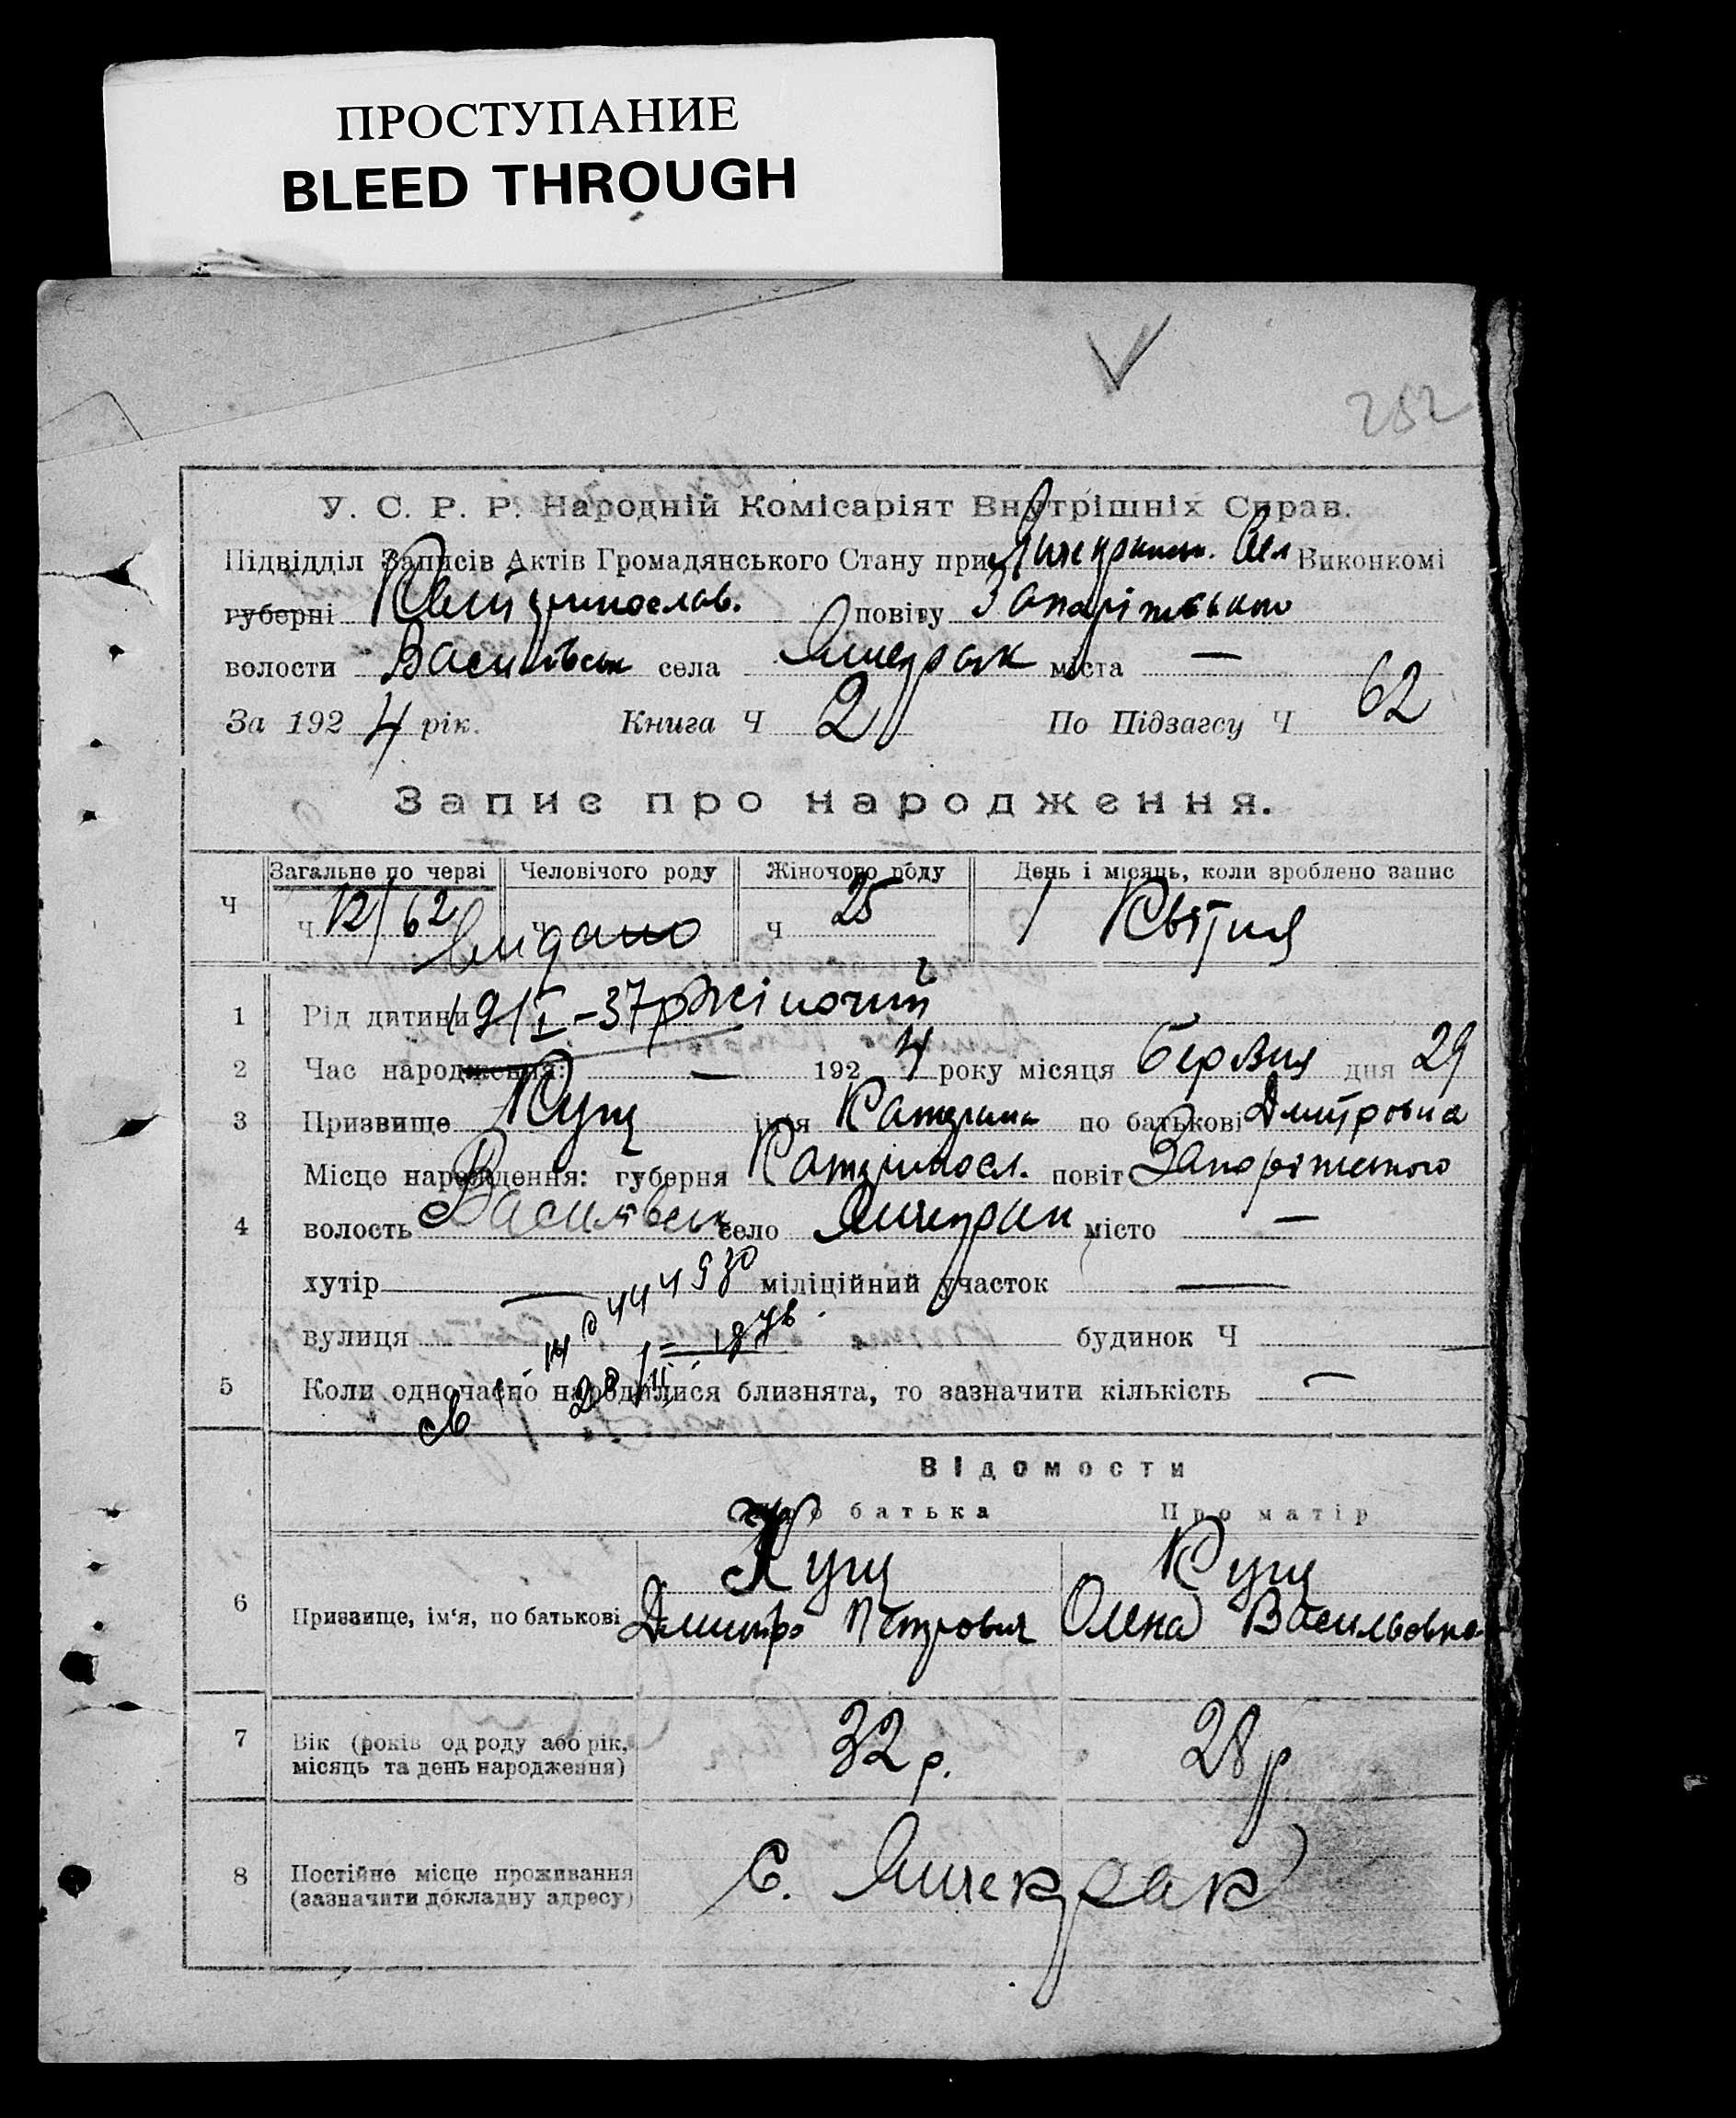 ПРОСТУПАНИЕ
BLEED THROUGH
252
У. С. Р. Р. Народній Комісаріят Внутрішніх Справ.
Підвідділ Записів Актів Громадянського Стану при Виконкомі
губерні повіту Запоріжського
волости Василівськ села Янчекрак міста —
За 1924 рік. Книга Ч 2 По Підзагсу Ч 62
Запис про народження.
Загальне по черзі Человічого роду Жіночого роду День і місяць, коли зроблено запис
Ч Ч 12/62 Ч Ч 25 1 Квітня
Видано
1 Рід дитини Жіночий
19/I-37р
2 Час народження: — 1924 року місяця березня дня 29
3 Призвище Кущ ім'я Катерина по батькові Дмитровна
4 Місце народження: губерня Катериносл. повіт Запоріжського
волость Васил�івськ село Янчекрак місто —
хутір — міліційний участок —
вулиця будинок Ч
5 Коли одночасно народилися близнята, то зазначити кількість —
Відомости
Про батька Про матір
6 Призвище, ім'я, по батькові Кущ Дмитро Петрович Кущ Олена Васильовна
7 Вік (років од роду або рік, місяць та день народження) 32 р. 28 р.
8 Постійне місце проживання (зазначити докладну адресу) С. Янчекрак